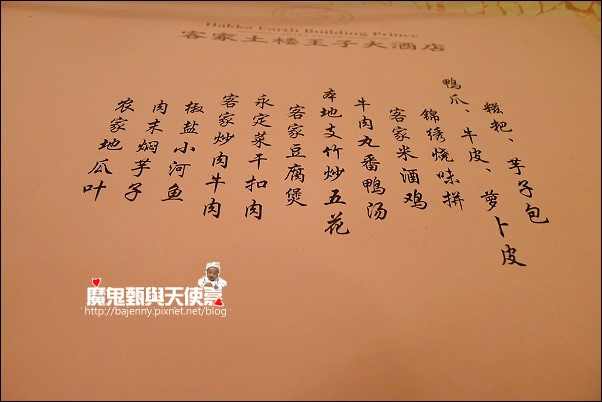 Hakka Earth Building Prince
客家土楼王子大酒店
糍粑、芋子包
鸭爪、牛皮、萝卜皮
锦绣烧味拼
客家米酒鸡
牛肉丸番鸭汤
本地支竹炒五花
客家豆腐煲
永定菜干扣肉
客家炒肉牛肉
椒盐小河鱼
肉末焖芋子
农家地瓜叶
魔鬼甄與天使嘉
http://bajenny.pixnet.net/blog